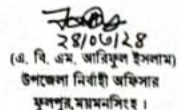 ২৪/০৭/২৪
(এ. বি. এম. আরিফুল ইসলাম)
উপজেলা নির্বাহী অফিসার
ফুলপুর, ময়মনসিংহ।